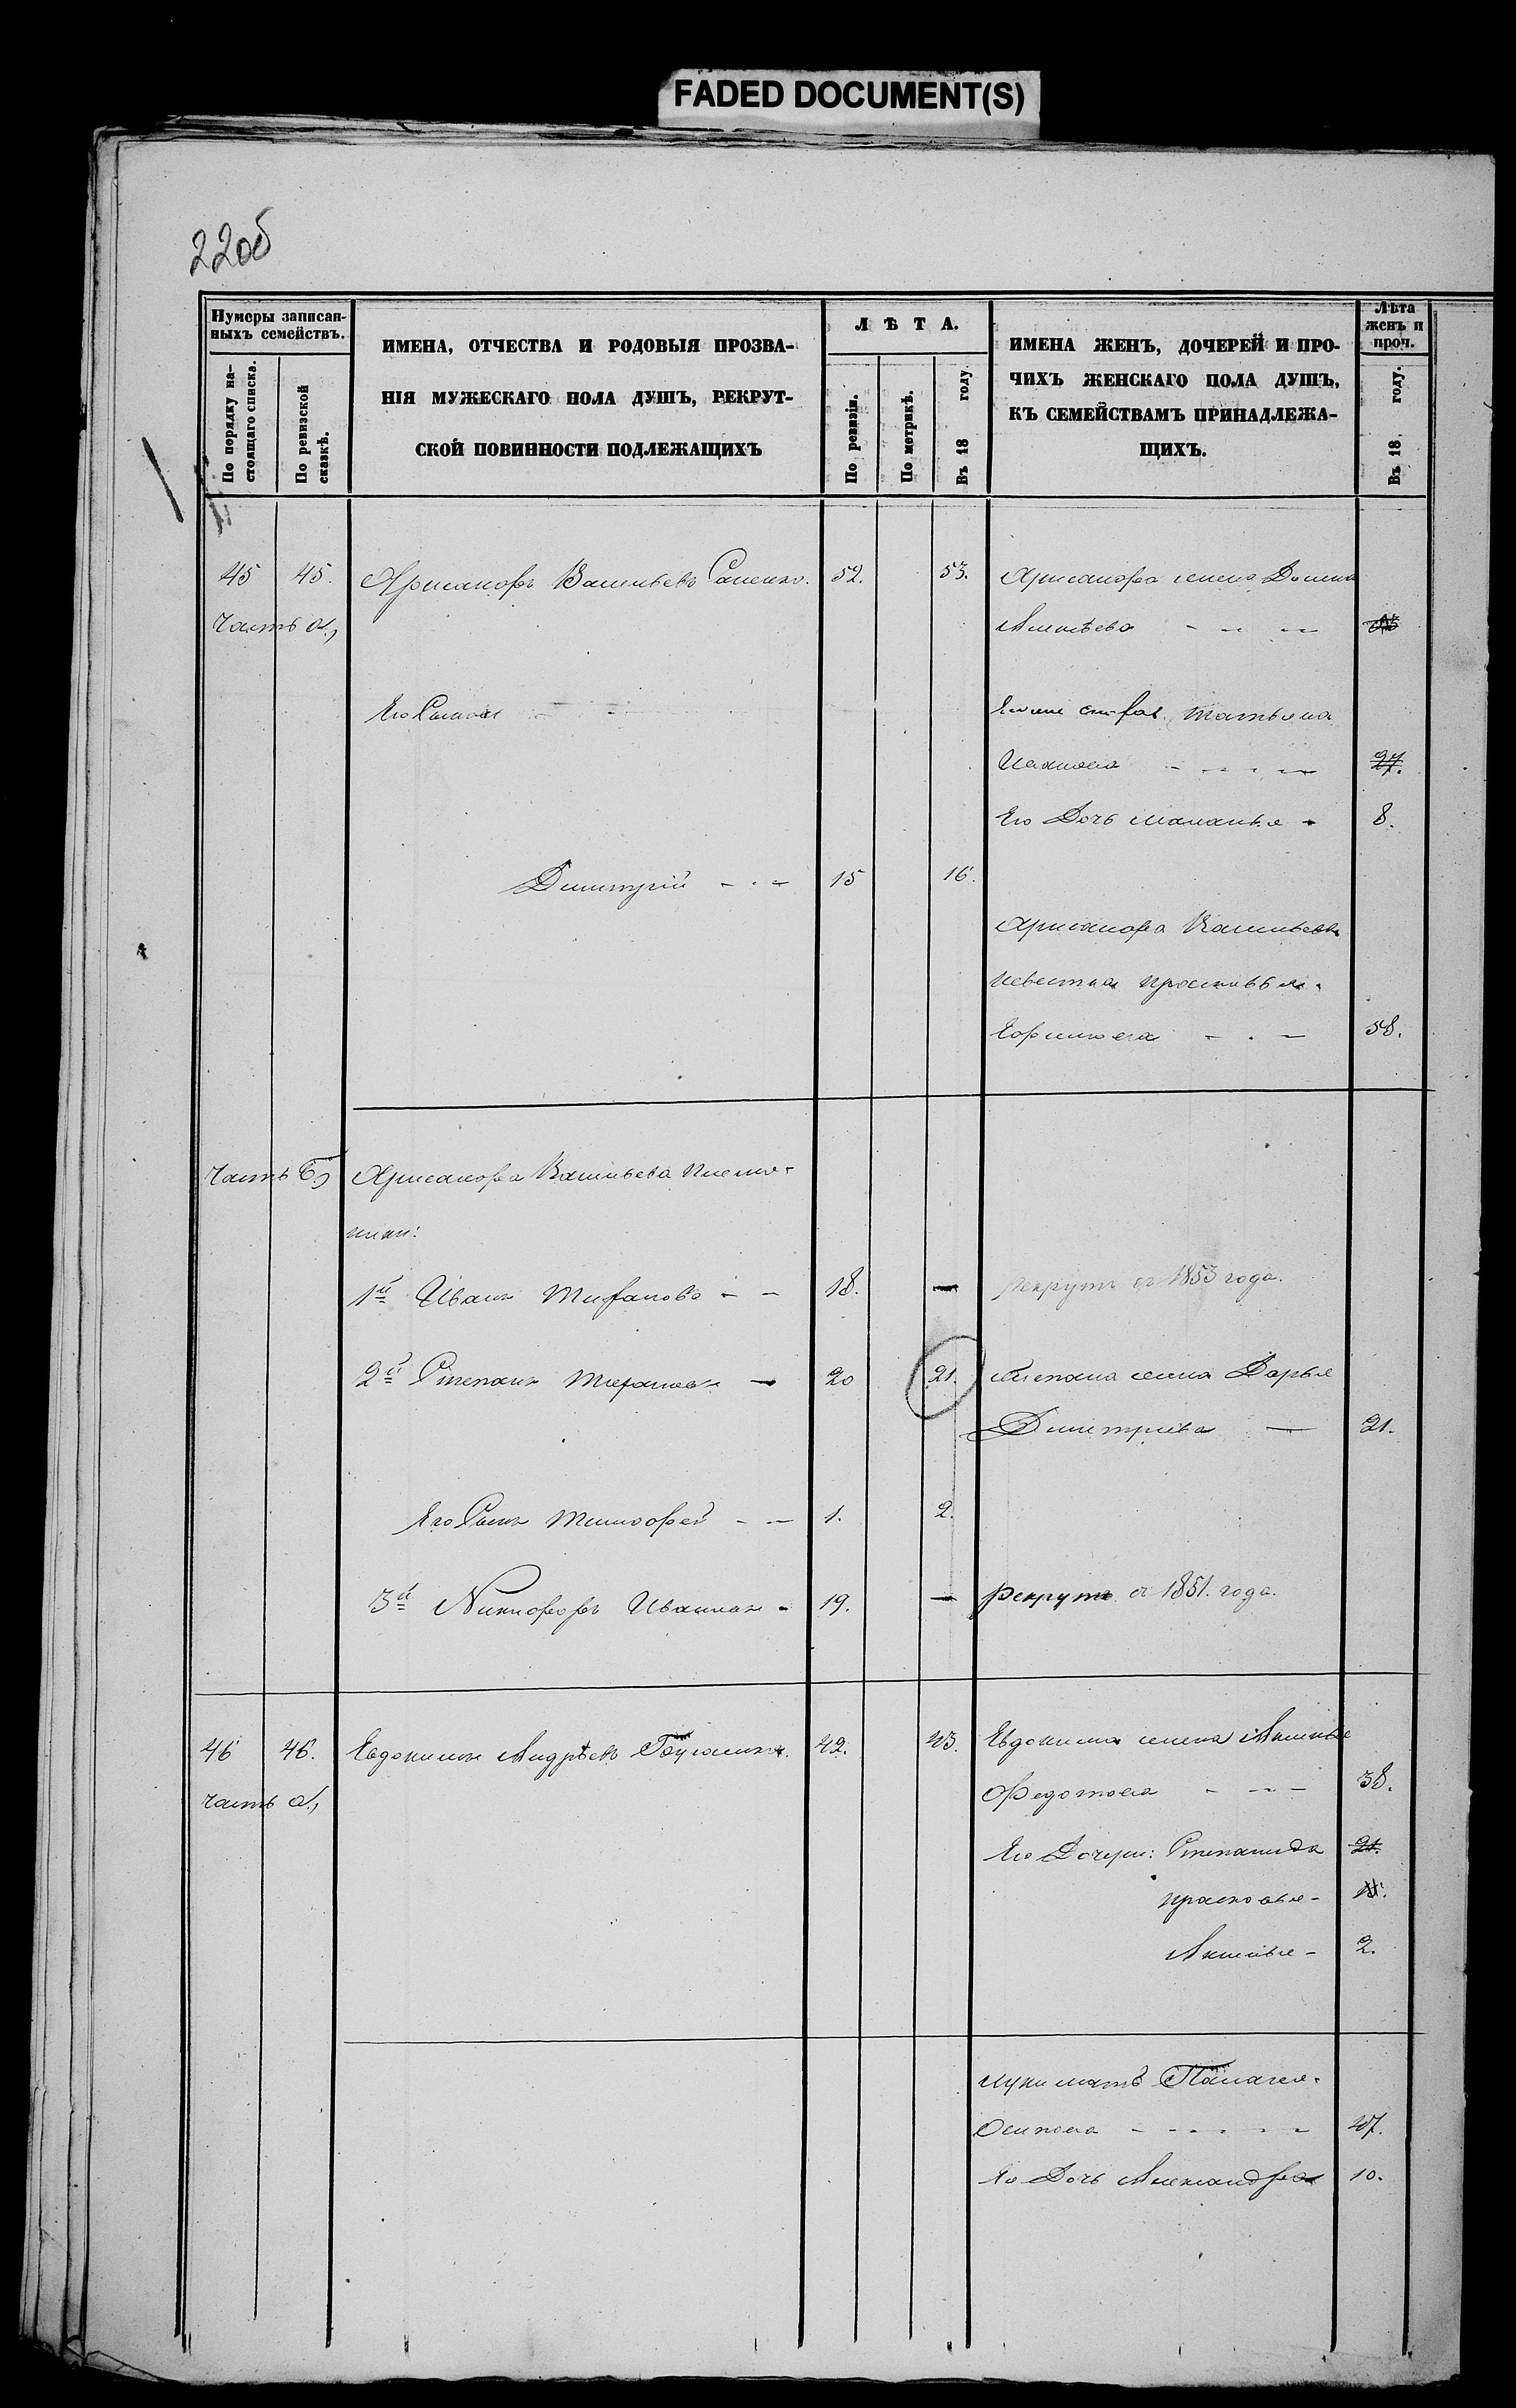 FADED DOCUMENT(S)
22об
Нумеры записан-
ныхъ семействъ.
По порядку на-
стоящаго списка.
По ревизской
сказкѣ.
ИМЕНА, ОТЧЕСТВА И РОДОВЫЯ ПРОЗВА-
НІЯ МУЖЕСКАГО ПОЛА ДУШЪ, РЕКРУТ-
СКОЙ ПОВИННОСТИ ПОДЛЕЖАЩИХЪ
ЛѢТА.
По ревизіи.
По метрикѣ.
Въ 18 году
ИМЕНА ЖЕНЪ, ДОЧЕРЕЙ И ПРО-
ЧИХЪ ЖЕНСКАГО ПОЛА ДУШЪ,
КЪ СЕМЕЙСТВАМЪ ПРИНАДЛЕЖА-
ЩИХЪ.
Лѣта
женъ и
проч.
Въ 18 году.
45 45. Хрисанфъ Васильевъ 52. 53. Хрисанфа жена
Часть а,
Татьяна
Иванова - - - - 27.
Его Дочь Маланья - 8.
Димитрій - - - 15 16.
Хрисанфа Васильева
невестка Прасковья
58.
Часть б, Хрисанфа Васильева племян-
ники:
1й Иванъ - - 18. — рекрутъ съ 1853 года.
2й Степанъ — 20 21. Степана жена Дарья
Димитриева — 21.
Его Сынъ Тимофей - - 1. 2.
3й Никифоръ Ивановъ - 19. — рекрутъ съ 1851. года.
46 46. Евдокимъ Андрѣевъ 42. 43. Евдокима жена Аксинья
часть а, Федотова - - - 38.
Его Дочери: Степанида 21.
Прасковья -
Аксинья - 2.
мать Палагея
Осипова - - - - - 47.
Ея Дочь Александра 10.